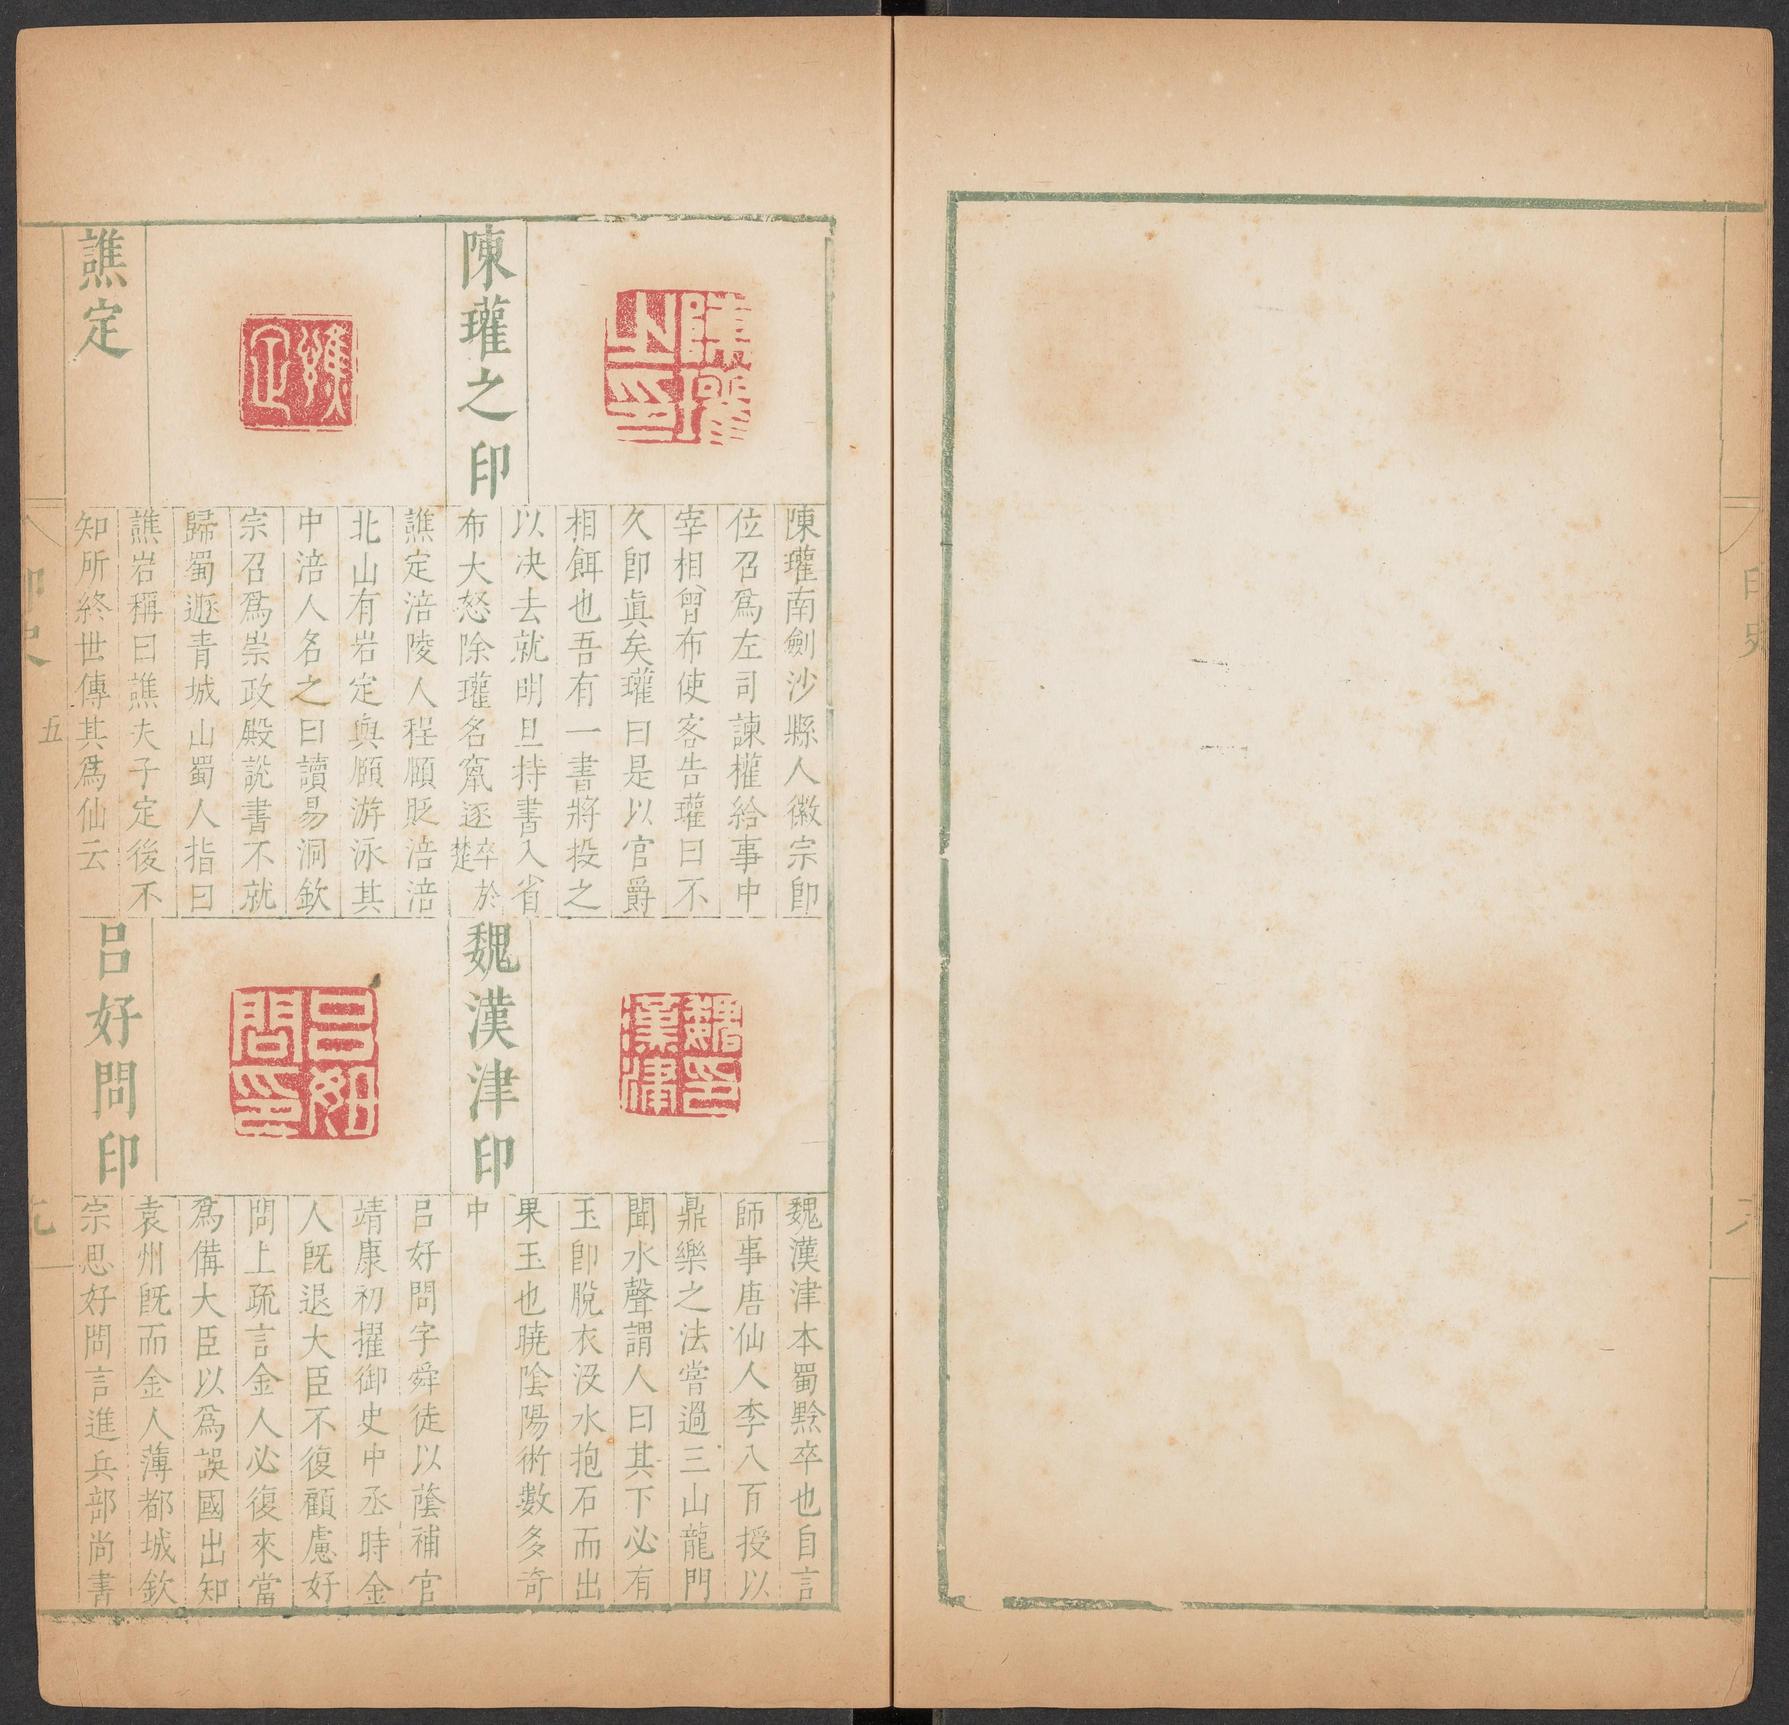 印史
六
陳瓘之印
陳瓘南劍沙縣人徽宗卽
位召爲左司諫權給事中
宰相曾布使客告瓘曰不
久卽眞矣瓘曰是以官爵
相餌也吾有一書將投之
以决去就明旦持書入省
布大怒除瓘名竄逐卒於楚
譙定
譙定涪陵人程頤貶涪涪
北山有岩定與頤游泳其
中涪人名之曰讀易洞欽
宗召爲崇政殿說書不就
歸蜀遯青城山蜀人指曰
譙岩稱曰譙夫子定後不
知所終世傳其爲仙云
魏漢津印
魏漢津本蜀黥卒也自言
師事唐仙人李八百授以
鼎樂之法嘗過三山龍門
聞水聲謂人曰其下必有
玉卽脫衣沒水抱石而出
果玉也曉陰陽術數多奇
中
呂好問印
呂好問字舜徒以蔭補官
靖康初擢御史中丞時金
人旣退大臣不復顧慮好
問上疏言金人必復來當
爲備大臣以爲誤國出知
袁州旣而金人薄都城欽
宗思好問言進兵部尚書
印史
五